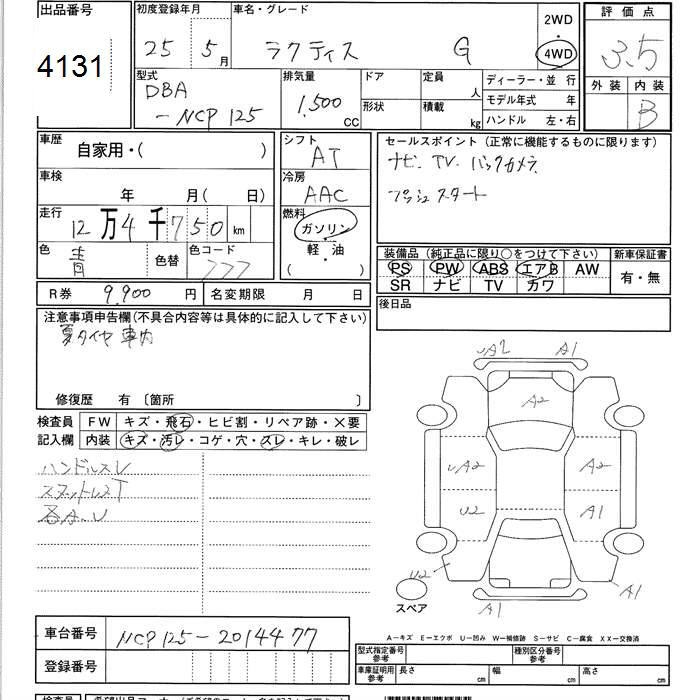 出品番号
4131
初度登録年月
25 5月
車名・グレード
ラクティス G
2WD
4WD
評価点
3.5
外装 内装
B
型式
DBA
-NCP125
排気量
1.500 cc
ドア
形状
定員 人
積載 kg
ディーラー・並行
モデル年式 年
ハンドル 左・右
車歴
自家用・( )
車検
年 月( 日)
走行
12万4千750km
色
青
色替
色コード
777
シフト
AT
冷房
AAC
燃料
ガソリン・
軽・油
( )
セールスポイント (正常に機能するものに限ります)
ナビ TV バックカメラ
プッシュスタート
装備品 (純正品に限り○をつけて下さい) 新車保証書
PS PW ABS エアB AW
SR ナビ TV カワ
有・無
R券 9.900円
名変期限 月 日
後日品
注意事項申告欄(不具合内容等は具体的に記入して下さい)
夏タイヤ 車内
修復歴 有 〔箇所 〕
検査員
記入欄
FW キズ・飛石・ヒビ割・リペア跡・×要
内装 キズ・汚レ・コゲ・穴・スレ・キレ・破レ
ハンドルスレ
UA2 A1
A2
UA2 A2
U2 A1
U2 A1
A1
スペア
車台番号 NCP125-2014477
登録番号
A-キズ E-エクボ U-凹み W-補修跡 S-サビ C-腐食 XX-交換済
型式指定番号
参考
種別区分番号
参考
車庫証明用
参考
長さ cm
幅 cm
高さ cm
検査員